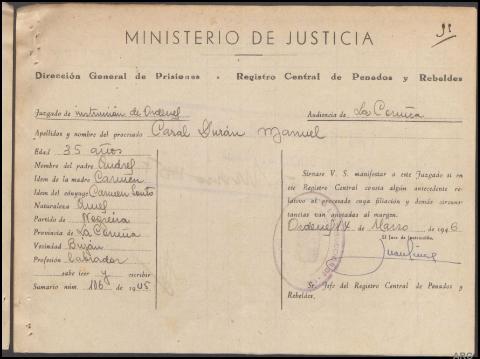 MINISTERIO DE JUSTICIA
Dirección General de Prisiones - Registro Central de Penados y Rebeldes
Juzgado de instrucción de Ordenes
Audiencia de La Coruña
Apellidos y nombre del procesado Caral Durán Manuel
Edad 35 años
Nombre del padre Andres
Idem de la madre Carmen
Idem del cónyuge Carmen Souto
Naturaleza
Partido de
Provincia de La Coruña
Vecindad
Profesión Labrador
sabe leer y escribir
Sumario núm. 106 de 1945
Sírvase V. S. manifestar a este Juzgado si en
ese Registro Central consta algún antecedente
relativo al procesado cuya filiación y demás circunstancias
van anotadas al margen.
Ordenes 14 de Marzo de 1946
El Juez de Instrucción,
Sr. Jefe del Registro Central de Penados y
Rebeldes.